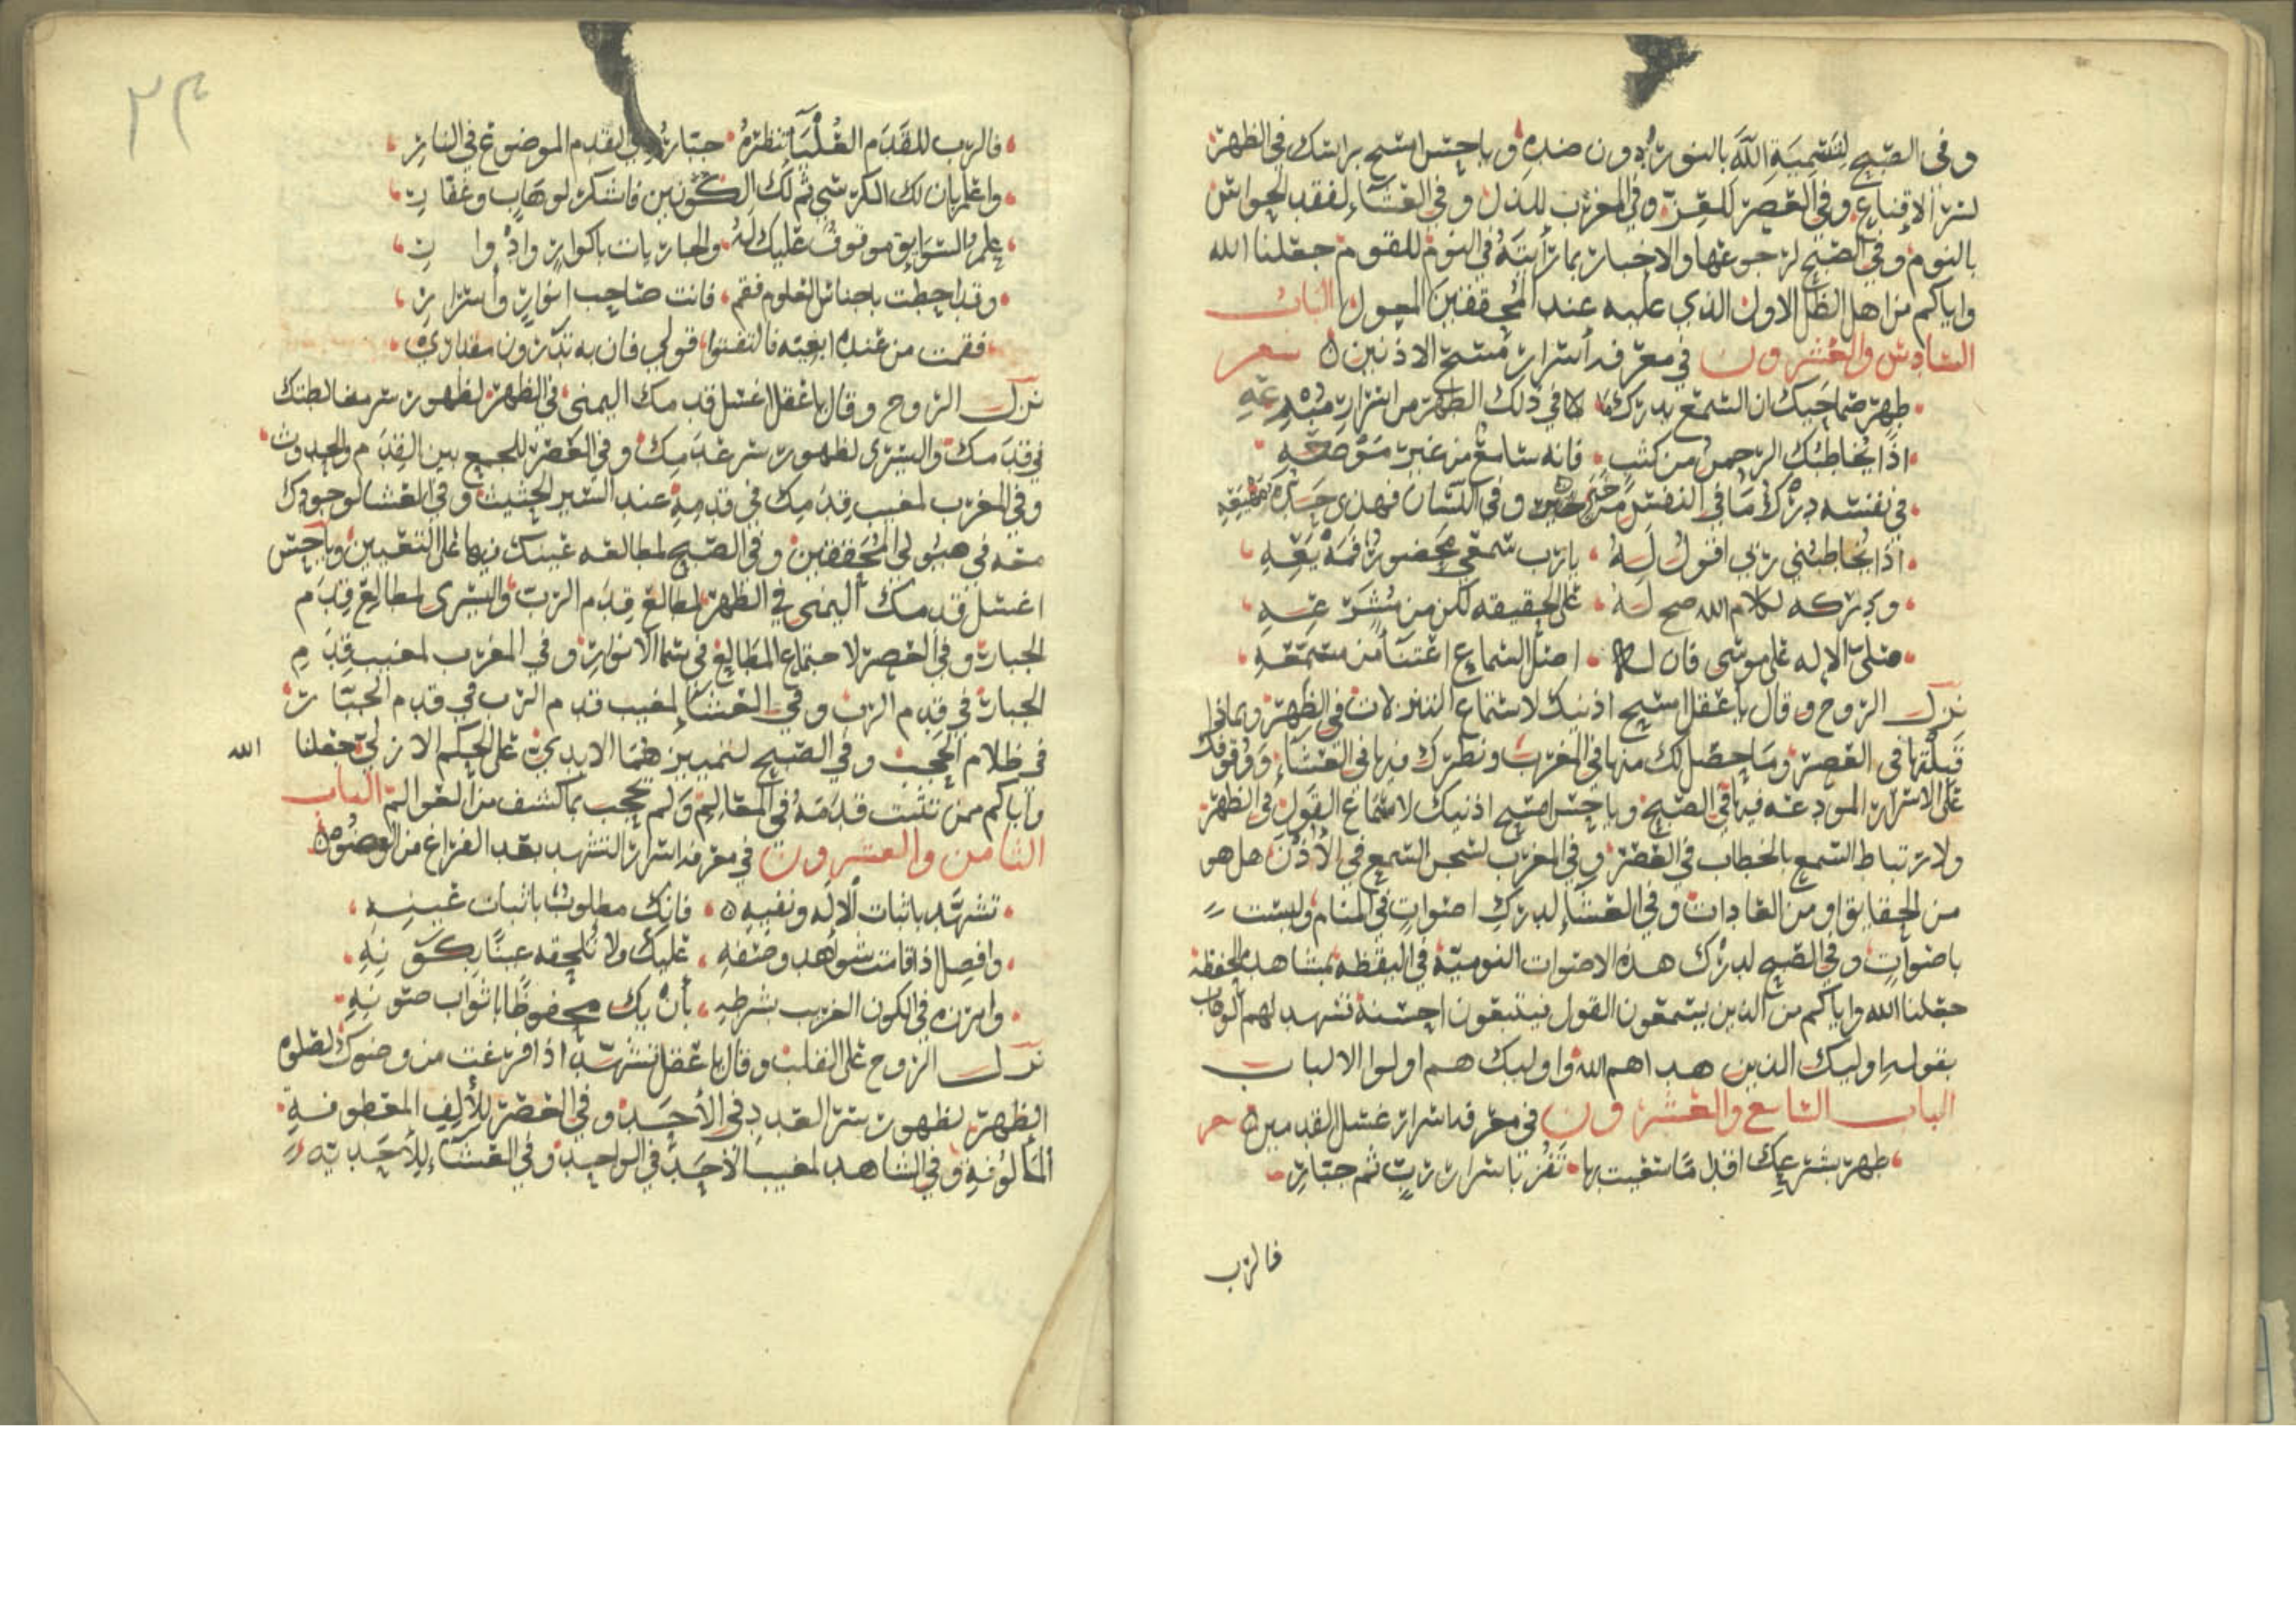 وفي الصبح لتسمية الله بالنور دون ضده ويا حس امسح براسك في الظهر
لسر الإقناع وفي العصر للعز وفي المغرب للذل وفي العشاء لفقد الحواس
بالنوم وفي الصبح لرجوعها والاخبار بما رأيته في النوم للقوم جعلنا الله
واياكم من اهل الظل الاول الذي عليه عند المحققين المعول الباب
السادس والعشرون في معرفة أسرار مسح الاذنين شعر
طهر صماخيك ان السمع يدرك ما في ذلك الطهر من اسرار مبدعه
اذا يخاطبك الرحمن من كثب فانه سامع من غير موضعه
في نفسه درك ما في النفس من وفي اللسان فهذي
اذا يخاطبني ربي اقول له يا رب سمعي بحضور فمه يعه
ودركه لكلام الله صح له على الحقيقه لكن من مشرعه
صلى الاله على موسى فان له اصل السماع اعتنا من مسمعه
نزل الروح وقال يا عقل امسح اذنيك لاستماع النذير لان في الظهر وبماذا
قبلتها في العصر وما حصل لك منها في المغرب ونظرك فيها في العشاء ووقوفك
على الاسرار المودعه فيها في الصبح ويا حس امسح اذنيك لاستماع القول في الظهر
ولارتباط السمع بالخطاب في العصر وفي المغرب لسجن السمع في الأذن هل هو
من الحقايق او من العادات وفي العشاء لدرك اصوات في المنام وليست
باصوات وفي الصبح لدرك هذه الاصوات النوميه في اليقظه بمشاهد
جعلنا الله واياكم من الذين يستمعون القول فيتبعون احسنه فشهد لهم الوهاب
بقوله اوليك الذين هداهم الله واوليك هم اولوا الالباب
الباب السابع والعشرون في معرفة اسرار غسل القدمين
طهر بشرعك اقداما سعيت بها تفز باسرار رب ثم جبار
فالرب
٢٣
فالرب للقدم العليا تنظره جبار القدم الموضوع في النار
واعلم بان لك الكرسي ثم لك الكونين فاشكر لوهاب وغفار
علم السوابق موقوف عليك له والجاريات باكوار وادوار
وقد احطت باجناس العلوم فقم فانت صاحب انوار وأسرار
فقمت من عنده ابغيه فالتفتوا قولي فان به تدرون مقداري
نزل الروح وقال يا عقل اغسل قدمك اليمنى في الظهر لظهور سر مخالطتك
في قدمك واليسرى لظهور سر عدمك وفي العصر للجمع بين القدم والحدوث
وفي المغرب لمغيب قدمك في قدمه عند السير الحثيث وفي العشا لوجودك
معه في هيولى المحققين وفي الصبح لمطالعه عينك فيها على التعيين ويا حس
اغسل قدمك اليمنى في الظهر لمطالع قدم الرب واليسرى لمطالع قدم
الجبار وفي العصر لاجتماع المطالع في سما الانوار وفي المغرب لمغيب قدم
الجبار في قدم الرب وفي العشاء لمغيب قدم الرب في قدم الجبار
في ظلام الحجب وفي الصبح لتمييزهما الابدي على الحكم الازلي جعلنا الله
واياكم ممن تثبت قدمه في المعالم ولم يحجب بما كشف من العوالم الباب
الثامن والعشرون في معرفة اسرار التشهد بعد الفراغ من الوضوء
تشهد باثبات الاله ونفيه فانك مطلوب باثبات عينه
وافصل اذا قامت شواهد وصفه عليك ولا تلحقه عينا بكونه
وابرزه في الكون الغريب بشرطه بأن يك محفوظا باثواب صونه
نزل الروح على القلب وقال يا عقل تشهد اذا فرغت من وضوك لصلوه
الظهر لظهور سر العدد في الأحد وفي العصر للألف المعطوفة
المألوفة وفي الشاهد لمغيب الأحد في الواحد وفي العشاء للأحدية